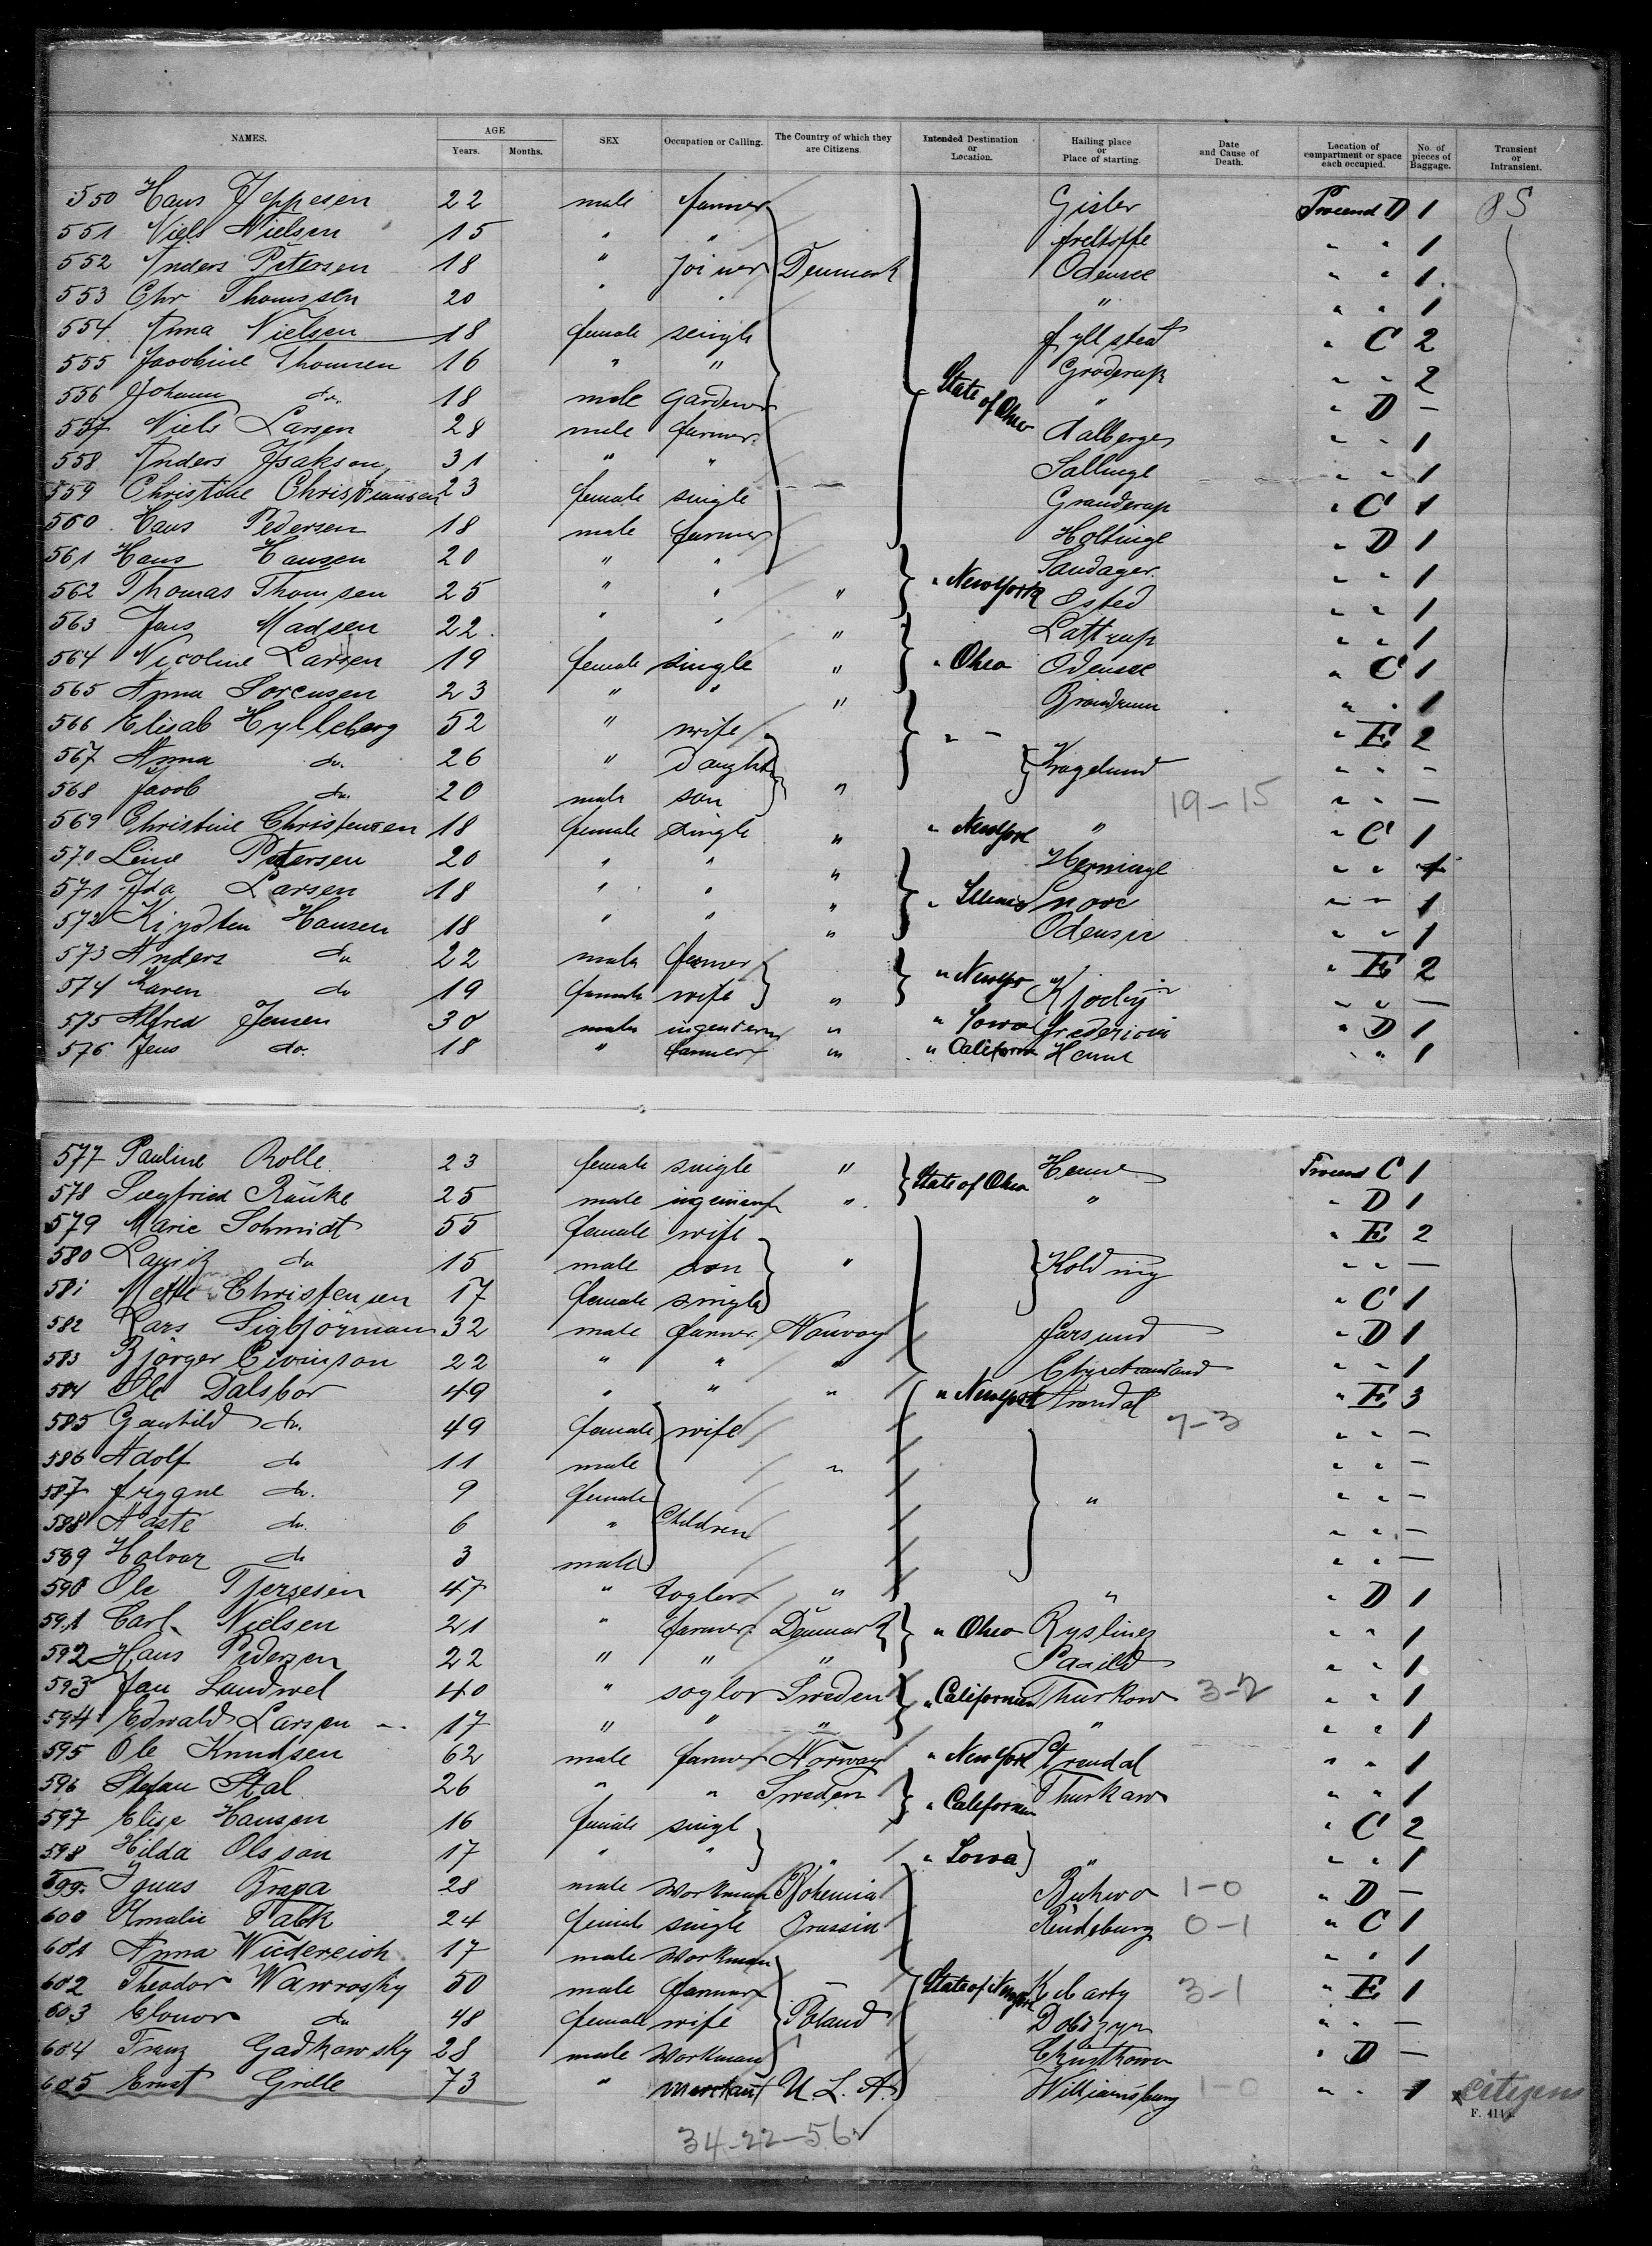 NAMES. AGE Years. Months. SEX Occupation or Calling. The Country of which they are Citizens. Intended Destination or Location. Hailing place or Place of starting. Date and Cause of Death. Location of compartment or space each occupied. No. of pieces of Baggage. Transient or Intransient.
550 Hans Jeppesen 22 male farmer Gislev D 1
551 Niels Nielsen 15 " " " " 1
552 Anders Petersen 18 " Joiner Denmark Odensee " " 1
553 Chr Thomssen 20 " " " " " 1
554 Anna Nielsen 18 female single " C 2
555 Jacobine Thomsen 16 " " Groderup " " 2
556 Johann do. 18 male gardener State of Ohio " " D —
557 Niels Larsen 28 male farmer Aalberge " " 1
558 Anders Isaksen 31 " " Sallinge " " 1
559 Christine Christiansen 23 female single Granderup " C 1
560 Hans Pedersen 18 male farmer Holtinge " D 1
561 Hans Hansen 20 " " Sandager " " 1
562 Thomas Thomsen 25 " " " " New York Osted " " 1
563 Jens Madsen 22 " " " Lattrup " " 1
564 Nicoline Larsen 19 female single " " Ohio Odensee " C 1
565 Anna Sorensen 23 " " " " " 1
566 Elisab Hylleberg 52 " wife " – " E 2
567 Anna do. 26 " Daught Kragelund " " —
568 Jacob do. 20 male son " 19-15 " " —
569 Christine Christensen 18 female single " " New York " " C 1
570 Line Petersen 20 " " " Herninge " " 1
571 Ida Larsen 18 " " " " Illinois Snave " " 1
572 Hansen 18 " " " Odense " " 1
573 Anders do 22 male farmer " New Yo " E 2
574 Karen do 19 female wife " " " —
575 Alfred Jensen 30 male " " Iowa Fredericia " D 1
576 Jens do. 18 " farmer " " California Henne " " 1
577 Pauline Rolle 23 female single " State of Ohio Henne C 1
578 Siegfried 25 male " " " D 1
579 Marie Schmidt 55 female wife " E 2
580 Lauritz do 15 male son " Kolding " " —
581 Mette Christensen 17 female single " C 1
582 Lars 32 male farmer Norway Farsund " D 1
583 22 " " " " " 1
584 Ole Dalsbor 49 " " " " New York Arendal " E 3
585 do. 49 female wife 7-3 " " —
586 Adolf do 11 male " " " —
587 do. 9 female " " " —
588 Aaste do. 6 " Children " " —
589 Halvor do 3 male " " —
590 Ole 47 " " " " D 1
591 Carl Nielsen 21 " farmer Denmark " Ohio Ryslinge " " 1
592 Hans Pedersen 22 " " " " " 1
593 Jan Lundwel 40 " soglor Sweden " California Thurkow 3-2 " " 1
594 Edwald Larsen 17 " " " " " " 1
595 Ole Knudsen 62 male farmer Norway " New York Arendal " " 1
596 Stefan Stal 26 " " Sweden " California Thurkaw " " 1
597 Elise Hansen 16 female singl " C 2
598 Hilda Olsson 17 " " " " Iowa " " " 1
599 28 male Workman Bohemia 1-0 " D —
600 Amalie 24 female single Prussia Rendsburg 0-1 " C 1
601 Anna Wiedereich 17 male Workman " " 1
602 Theodor Wawrosky 50 male farmer State of New York 3-1 " E 1
603 do 48 female wife Poland Dobrzyn " " —
604 Franz Gadkowsky 28 male Workman " D —
605 Ernst Grille 73 " merchant U. S. A. Williamsburg 1-0 " " 1 citizens
F. 411
34-22-56